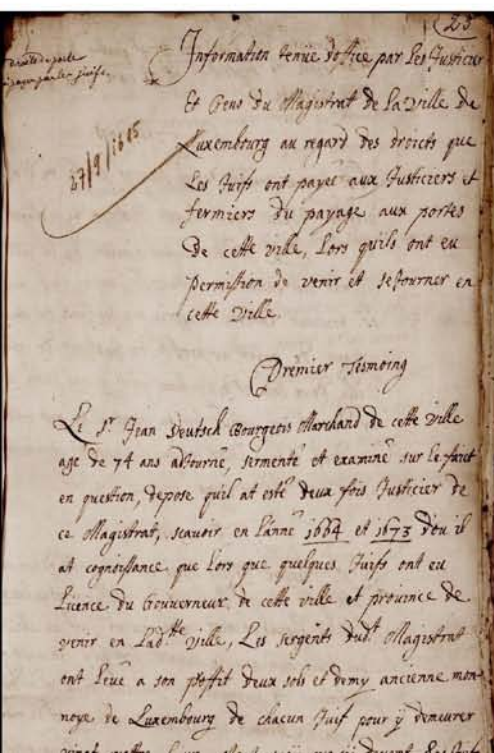 23
droits de porte
payes par les juifs
27/9/1685
Information tenüe doffice par Les Justicier
Et Gens du Magistrat de La ville de
Luxembourg au regard des droicts que
Les Juifs ont payé aux Justiciers et
fermiers du payage aux portes
De cette ville, Lors quils ont eu
permission de venir et seiourner en
cette Ville.
Premier Tesmoing
Le Sr Jean Deutsch Bourgeois Marchand de cette ville
age de 74 ans adiourné, sermenté et examiné sur le faict
en question, depose quil at esté deux fois Justicier de
ce Magistrat, scauoir en L'anné 1664 et 1673 dou il
at cognoissance que Lors que quelques Juifs ont eu
Licence du Gouuerneur de cette ville et prouince de
venir en Ladtte ville, Les sergents dudt Magistrat
ont Leué a son proffit deux sols et demy ancienne mon-
noye de Luxembourg de chacun Juif pour y demeurer
vingt quattre